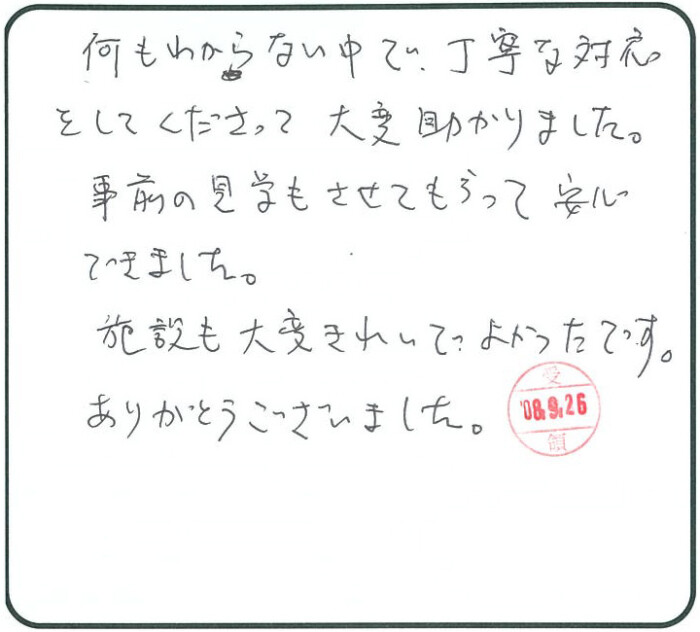 何もわからない中で、丁寧な対応
をしてくださって 大変助かりました。
事前の見学もさせてもらって 安心
できました。
施設も大変きれいで よかったです。
ありがとうございました。
受
'08.9.26
領